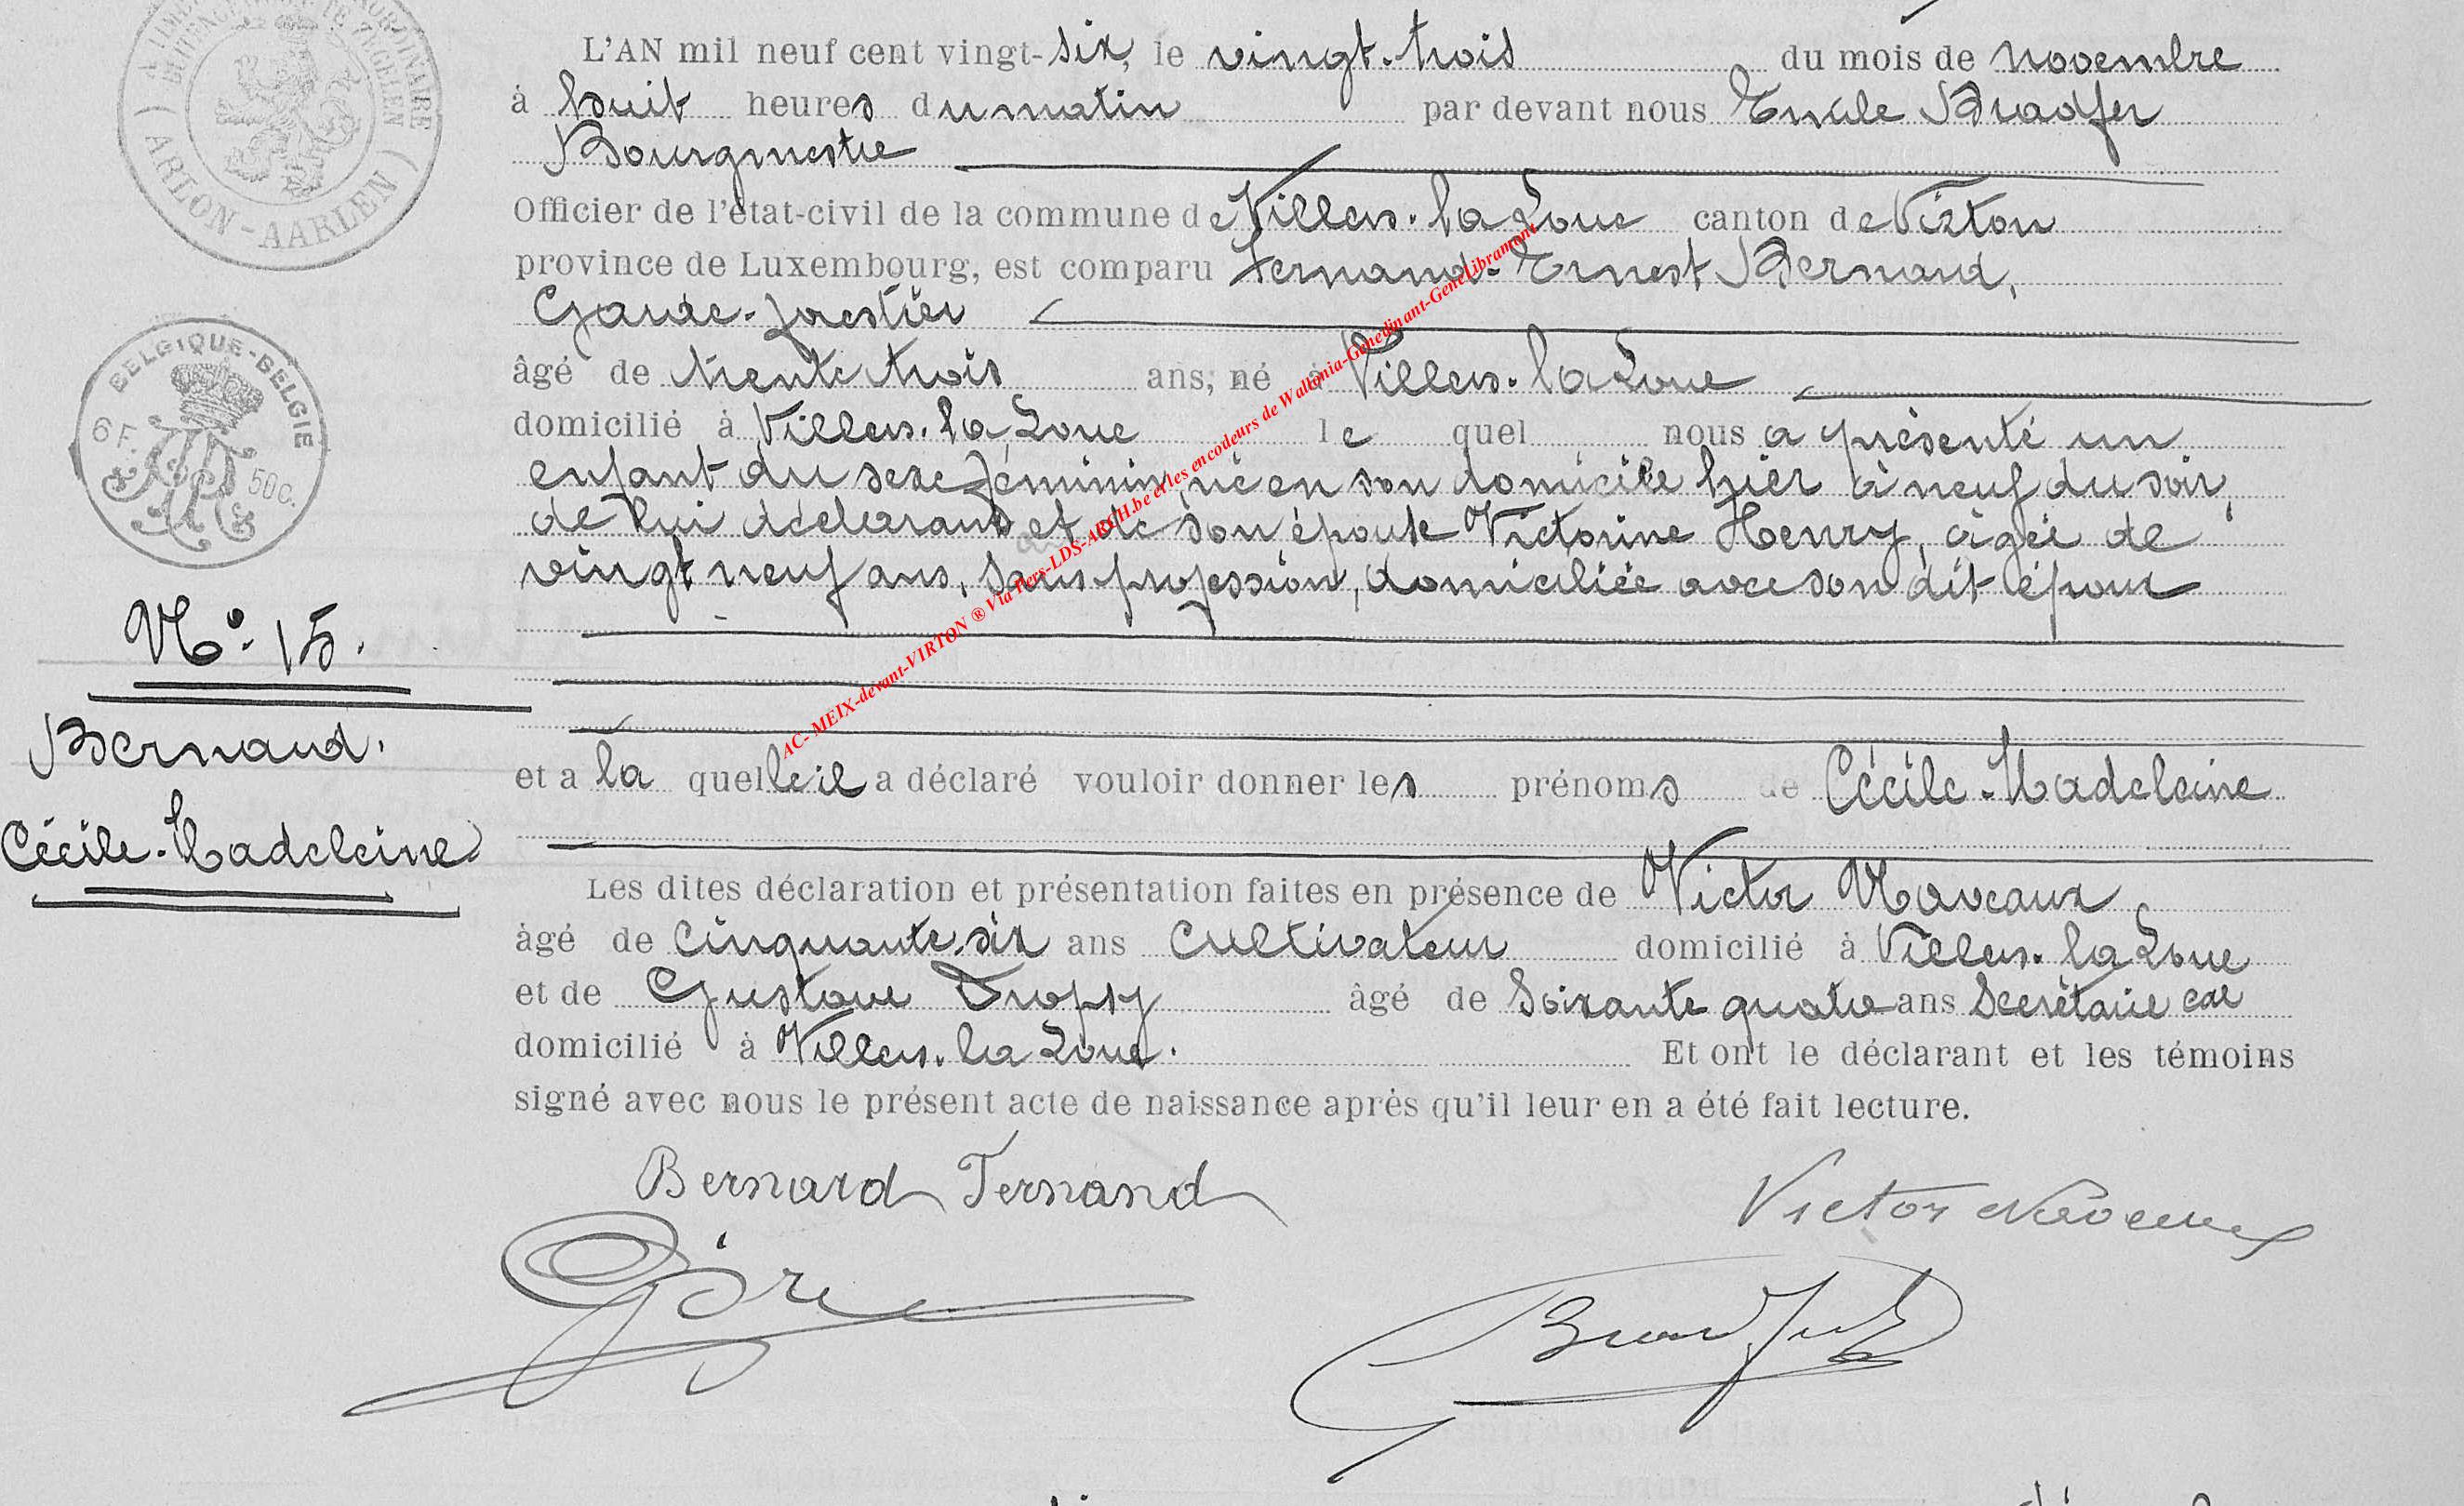 BUITENGEWOON TE ZEGELEN
ARLON-AARLEN
L'AN mil neuf cent vingt-six, le vingt-trois du mois de novembre
à huit heures du matin par devant nous Emile Bradfer
Bourgmestre
Officier de l'état-civil de la commune de Villers-la-Loue canton de Virton
province de Luxembourg, est comparu Fernand-Ernest Bernard,
Garde-forestier
BELGIQUE-BELGIE
6 F. 50 C.
âgé de trente trois ans, né à Villers-la-Loue
domicilié à Villers-la-Loue le quel nous a présenté un
enfant du sexe féminin, né en son domicile hier à neuf du soir,
de lui déclarant et de son épouse Victorine Henry, âgée de
vingt neuf ans, sans profession, domiciliée avec son dit époux
N° 15.
Bernard.
Cécile-Madeleine
et a la quelle il a déclaré vouloir donner les prénoms de Cécile-Madeleine
Les dites déclaration et présentation faites en présence de Victor Naveaux
âgé de cinquante-six ans cultivateur domicilié à Villers-la-Loue
et de Gustave Dropsy âgé de soixante quatre ans Secrétaire cal
domicilié à Villers-la-Loue. Et ont le déclarant et les témoins
signé avec nous le présent acte de naissance après qu'il leur en a été fait lecture.
Bernard Fernand
Victor Naveaux
Bradfer
AC- MEIX-devant-VIRTON ® Via Tiers-LDS-ARCH.be et les encodeurs de Wallonia-Genedinant-GeneLibramont